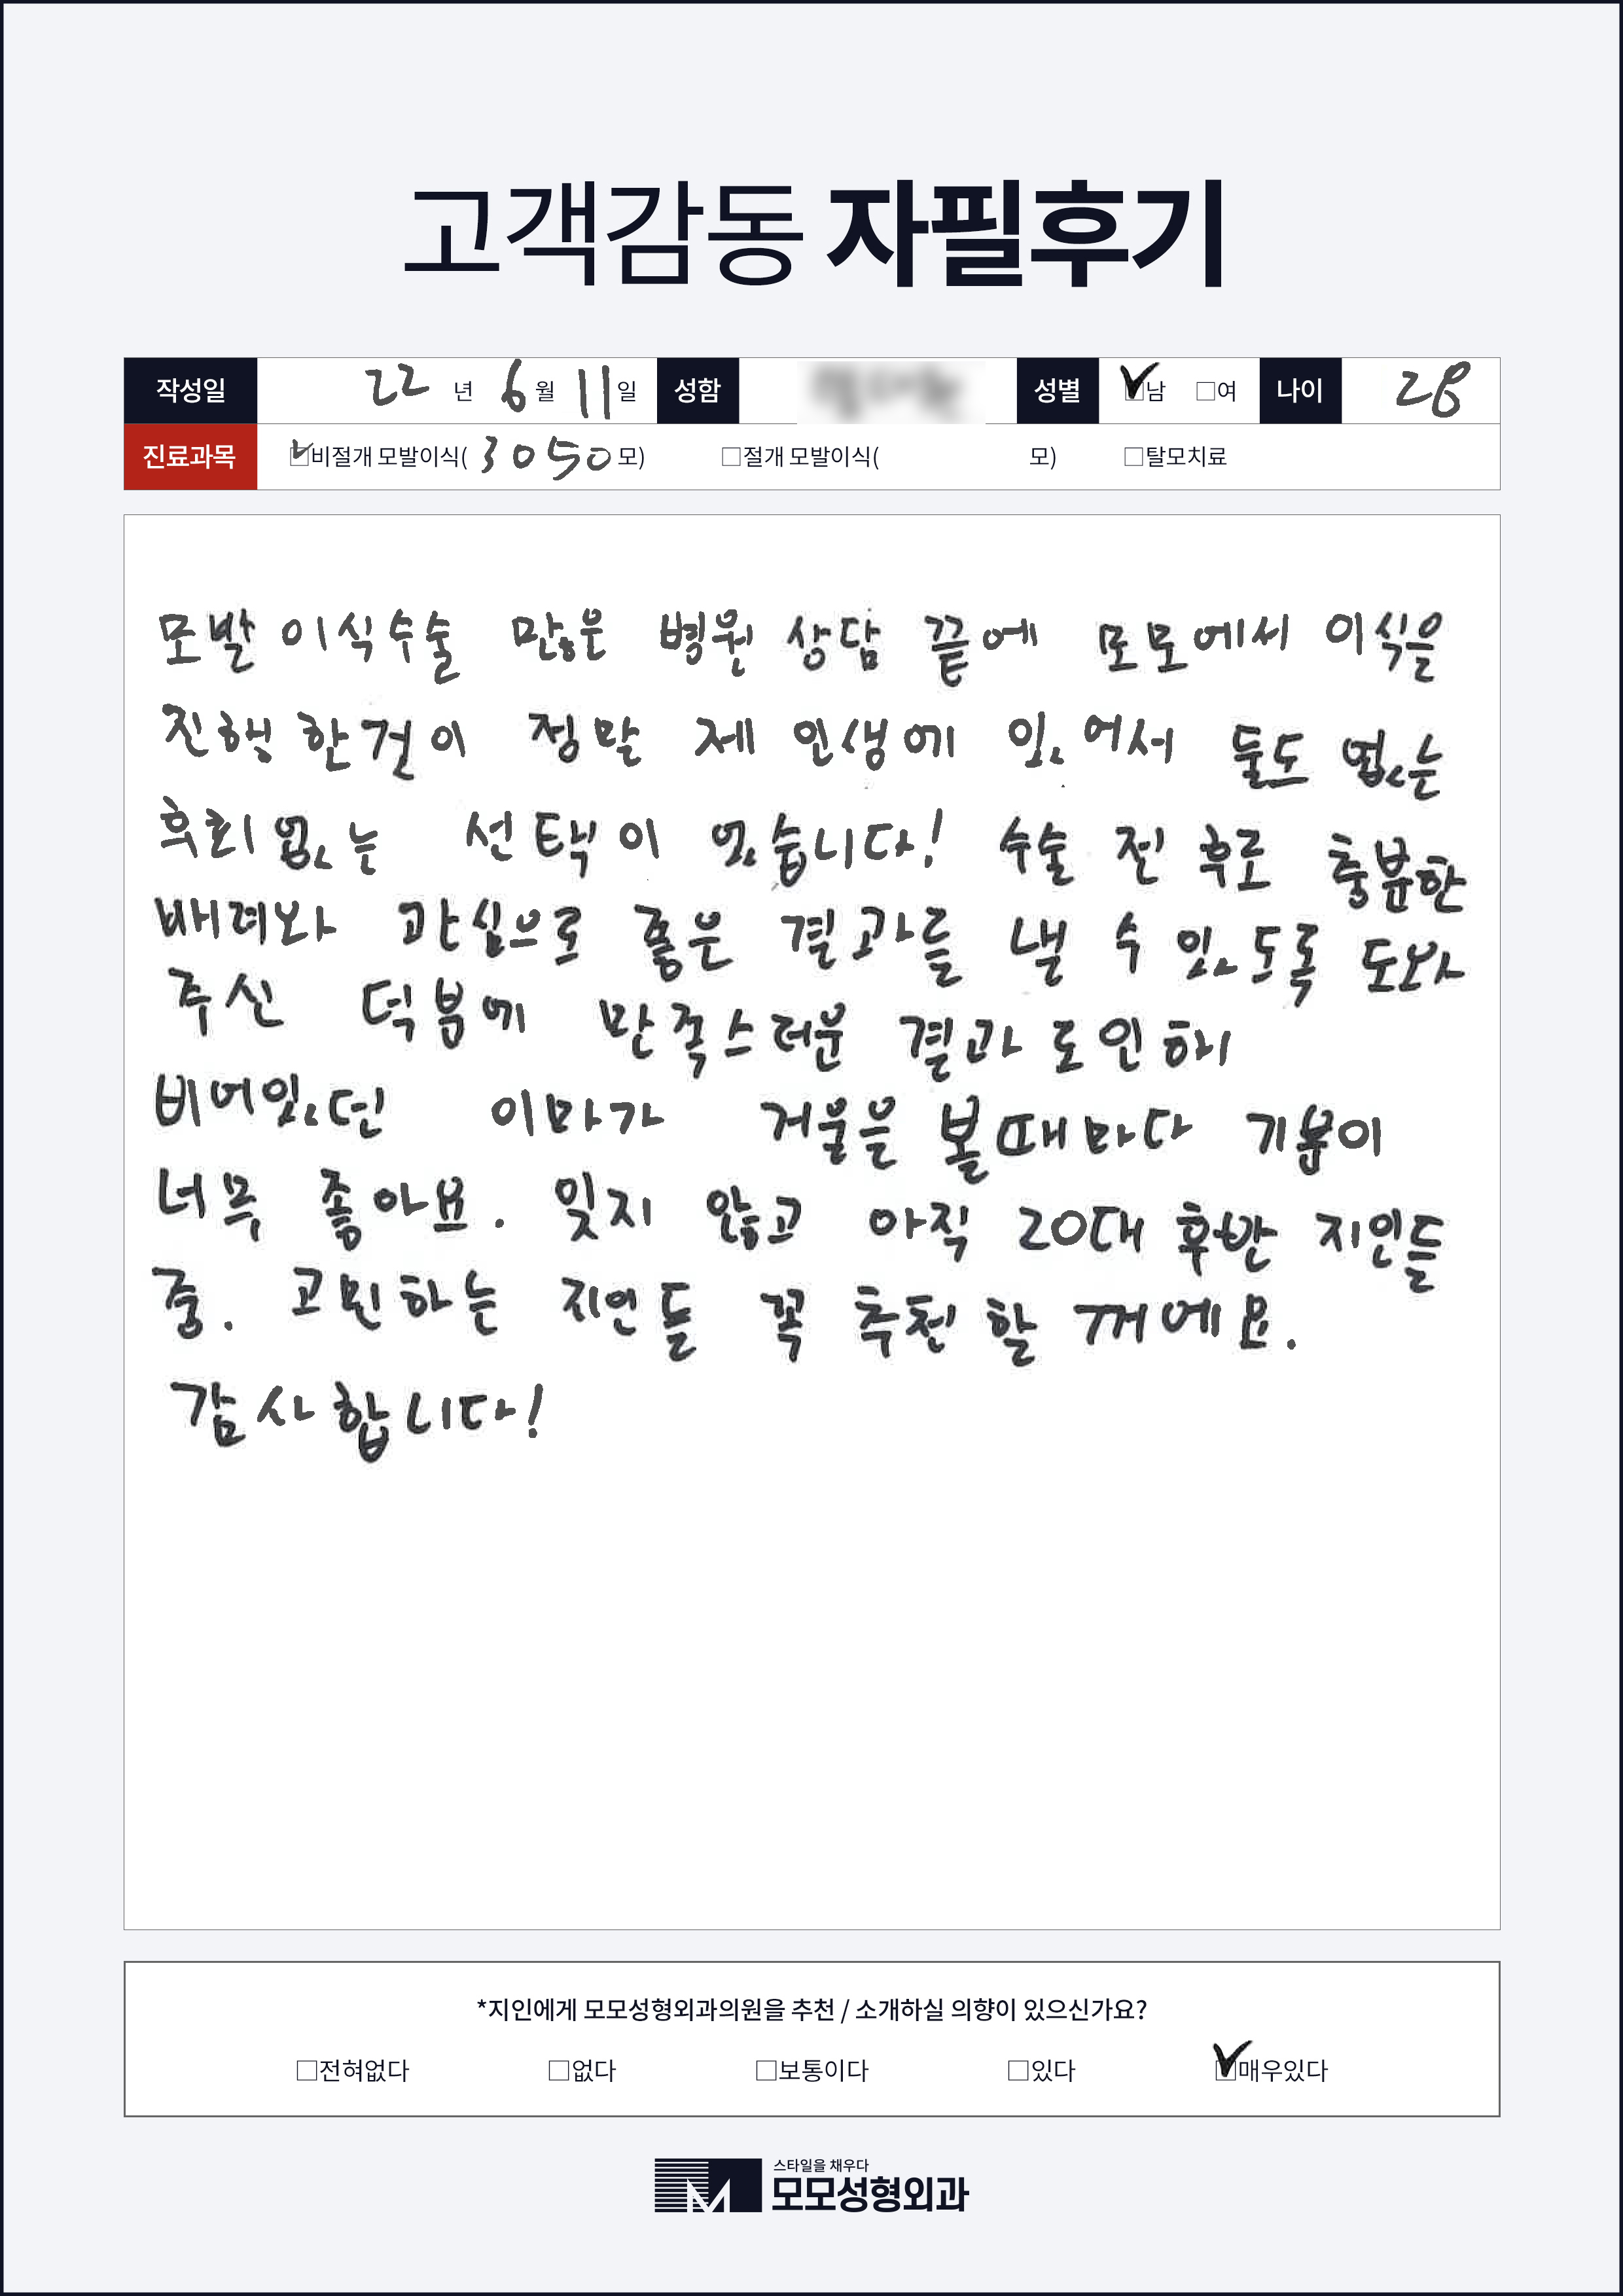 고객감동 자필후기
작성일 22 년 6 월 11 일 성함 성별 ☑남 □여 나이 28
진료과목 ☑비절개 모발이식( 3050 모) □절개 모발이식( 모) □탈모치료
모발이식수술 많은 병원 상담 끝에 모모에서 이식을
진행 한걸이 정말 제 인생에 있어서 둘도 없는
후회없는 선택이 었습니다! 수술 전 후로 충분한
배려와 관심으로 좋은 결과를 낼 수 있도록 도와
주신 덕분에 만족스러운 결과로인해
비어있던 이마가 거울을 볼때마다 기분이
너무 좋아요. 잊지 않고 아직 20대 후반 지인들
중. 고민하는 지인들 꼭 추천 할 꺼에요.
감사합니다!
*지인에게 모모성형외과의원을 추천 / 소개하실 의향이 있으신가요?
□전혀없다 □없다 □보통이다 □있다 ☑매우있다
스타일을 채우다
모모성형외과